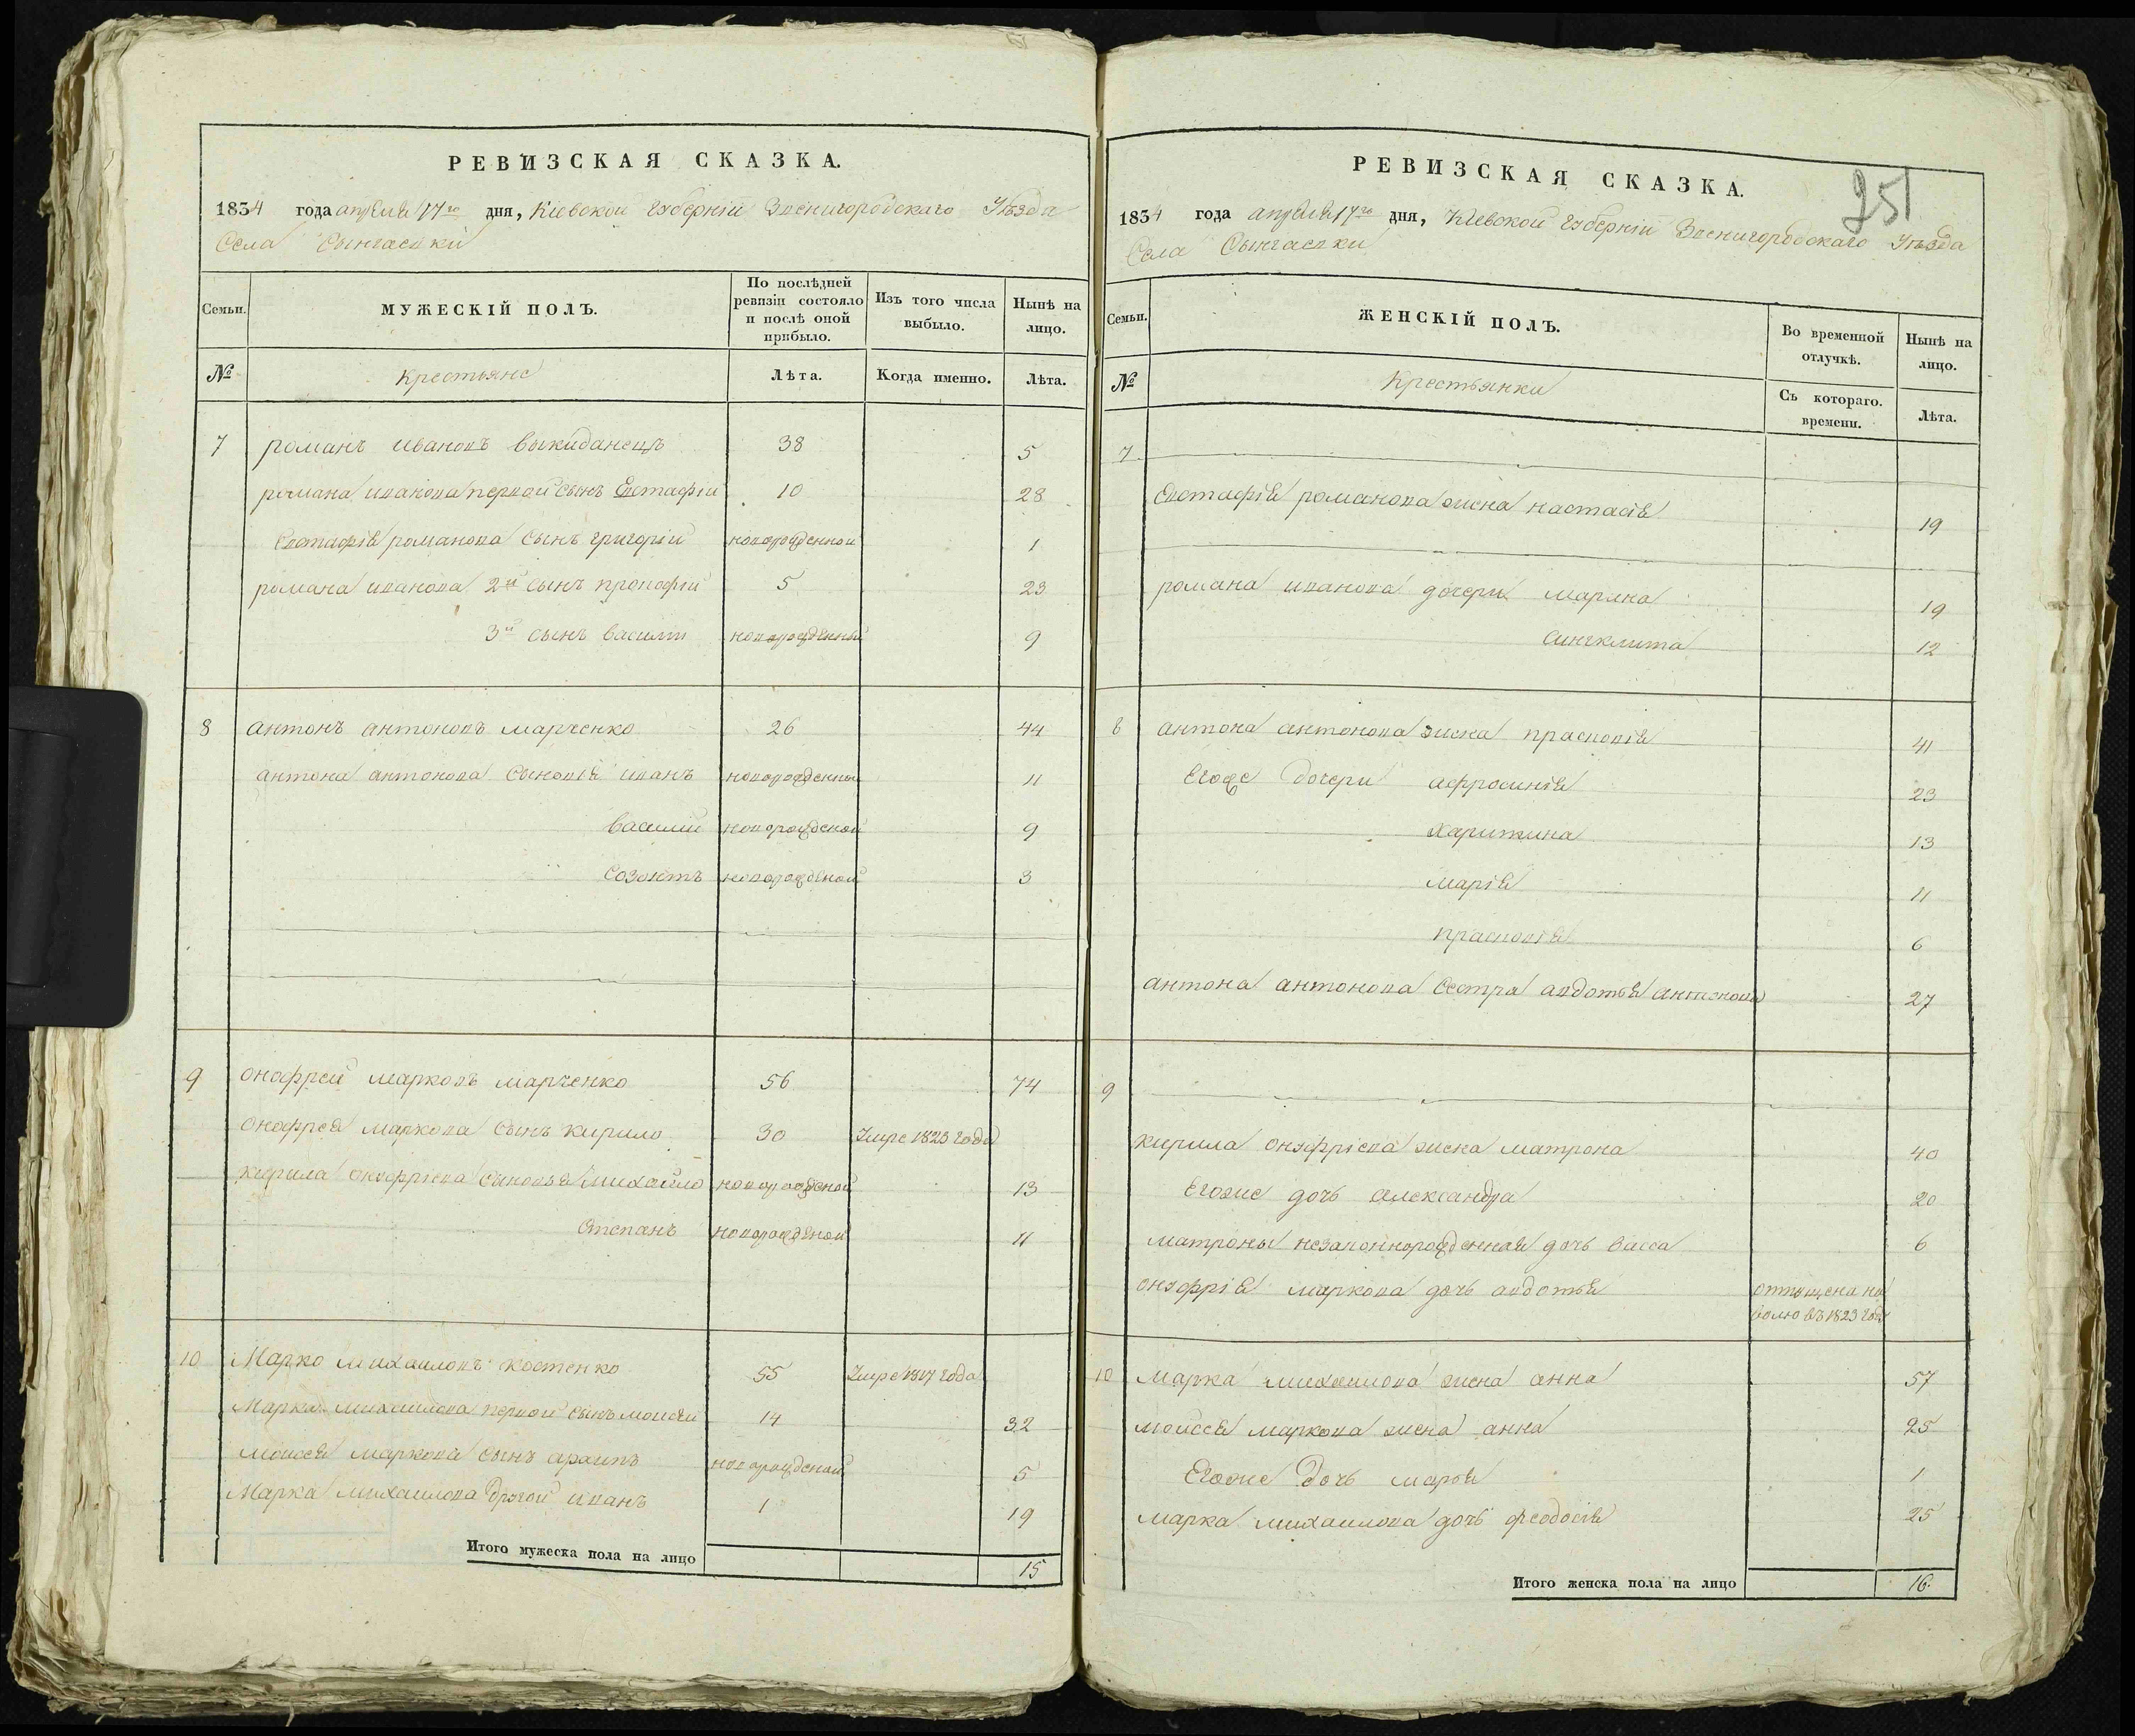 РЕВИЗСКАЯ СКАЗКА.
1834 года апреля 17го дня, Киевской губернiи Звенигородскаго Уѣзда
Села Сынгаевки
Семьи.
МУЖЕСКIЙ ПОЛЪ.
По послѣдней ревизiи состояло и послѣ оной прибыло.
Изъ того числа выбыло.
Нынѣ на лицо.
№
Крестьяне
Лѣта.
Когда именно.
Лѣта.
7 романъ ивановъ выкиданецъ 38 5
романа иванова первой сынъ Евстафiй 10 28
Евстафiя романова сынъ григорiй новорожденной 1
романа иванова 2й сынъ прокофiй 5 23
3й сынъ василiй новорожденный 9
8 антонъ антоновъ марченко 26 44
антона антонова сыновiя иванъ новорожденны 11
василiй новорожденой 9
созонтъ новорожденой 3
9 онофрей марковъ марченко 56 74
онофрея маркова сынъ кирило 30 Умре 1823 года
кирила онофрiева сыновья михайло новорожденой 13
степанъ новорожденой 11
10 Марко михаиловъ костенко 55 Умре 1817 года
Марка михаилова первой сынъ моисей 14 32
моисея маркова сынъ архипъ новорожденой 5
Марка михаилова другой иванъ 1 19
Итого мужеска пола на лицо 15
РЕВИЗСКАЯ СКАЗКА.
251
1834 года апреля 17го дня, Киевской губернiи Звенигородскаго Уѣзда
Села Сынгаевки
Семьи.
ЖЕНСКIЙ ПОЛЪ.
Во временной отлучкѣ.
Нынѣ на лицо.
№
Крестьянки
Съ котораго. времени.
Лѣта.
7
Евстафiя романова жена настасiя 19
романа иванова дочери марина 19
синклита 12
8 антона антонова жена прасковiя 41
Егоже дочери афросинiя 23
харитина 13
марiя 11
прасковiя 6
антона антонова сестра авдотья антонова 27
9
кирила онофрiева жена матрона 40
Егоже дочь александра 20
матроны незаконнорожденная дочь васса 6
онофрiя маркова дочь авдотья отпущена на волю въ 1823 году
10 марка михаилова жена анна 57
моисея маркова жена анна 25
Егоже дочь марья 1
марка михаилова дочь феодосiя 25
Итого женска пола на лицо 16.